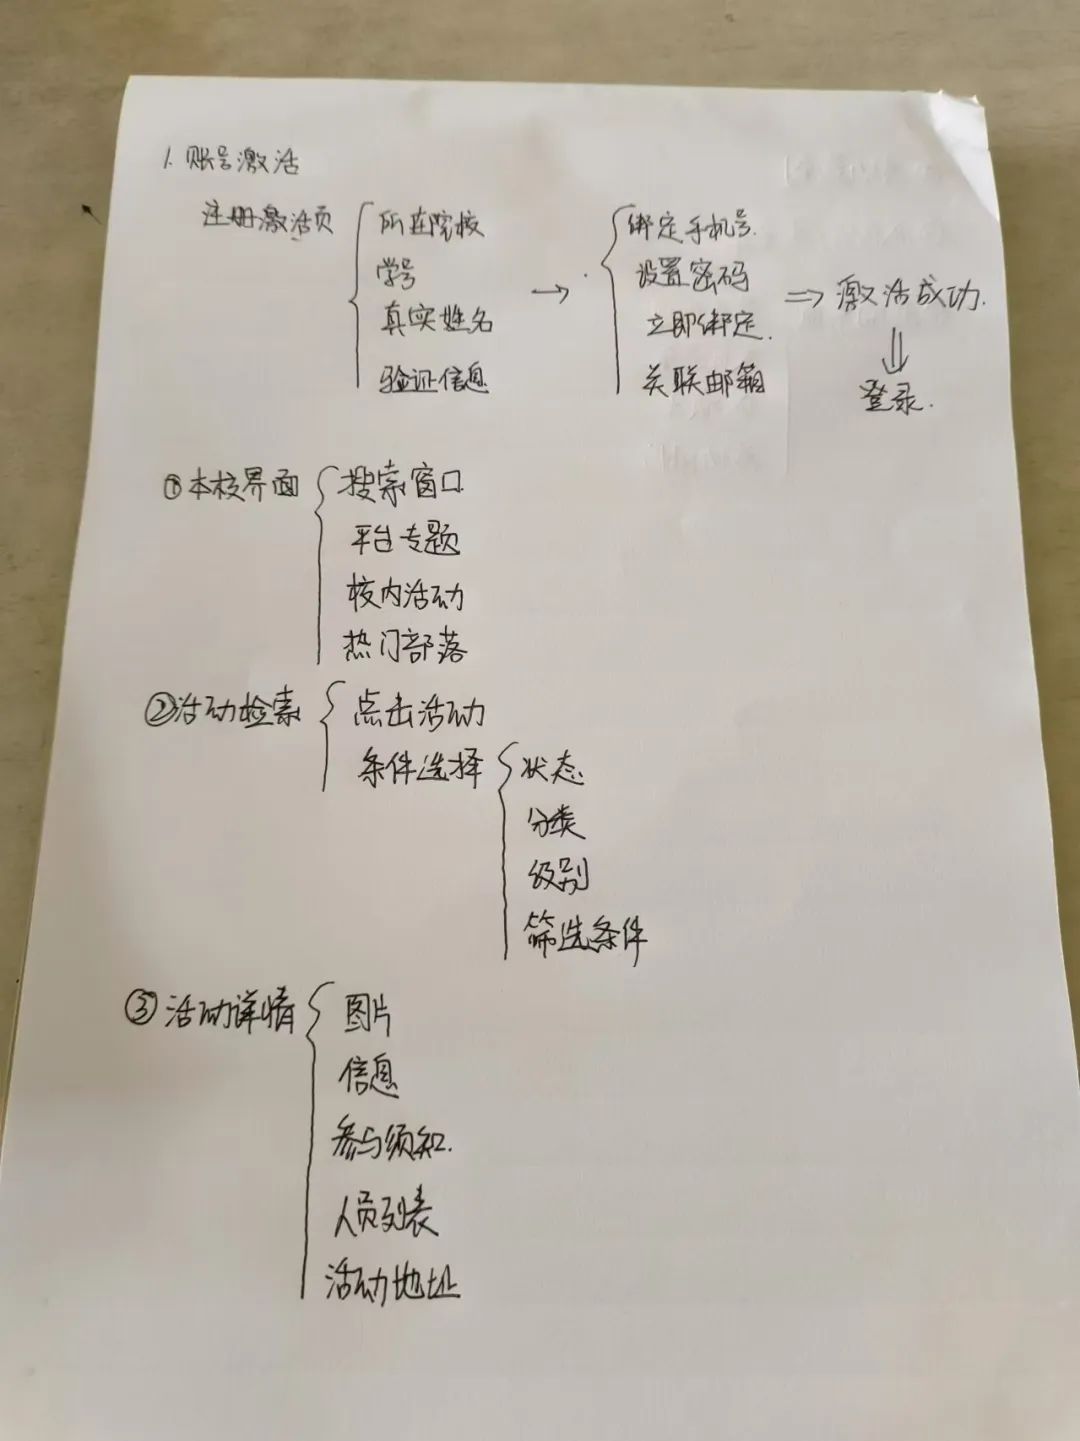 1. 账号激活
注册激活页
所在院校
学号
真实姓名
验证信息
→
绑定手机号.
设置密码
立即绑定.
关联邮箱
⇒ 激活成功.
⇓
登录.
①本校界面
搜索窗口
平台专题
校内活动
热门部落
②活动检索
点击活动
条件选择
状态
分类
级别
筛选条件
③活动详情
图片
信息
参与须知.
人员列表
活动地址